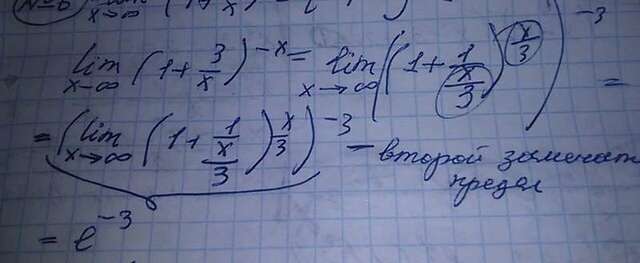 lim x→∞ (1+3/x)^{-x} = lim x→∞ ((1+1/(x/3))^{x/3})^{-3} =
= (lim x→∞ (1+1/(x/3))^{x/3})^{-3} - второй замечат
предел
= e^{-3}